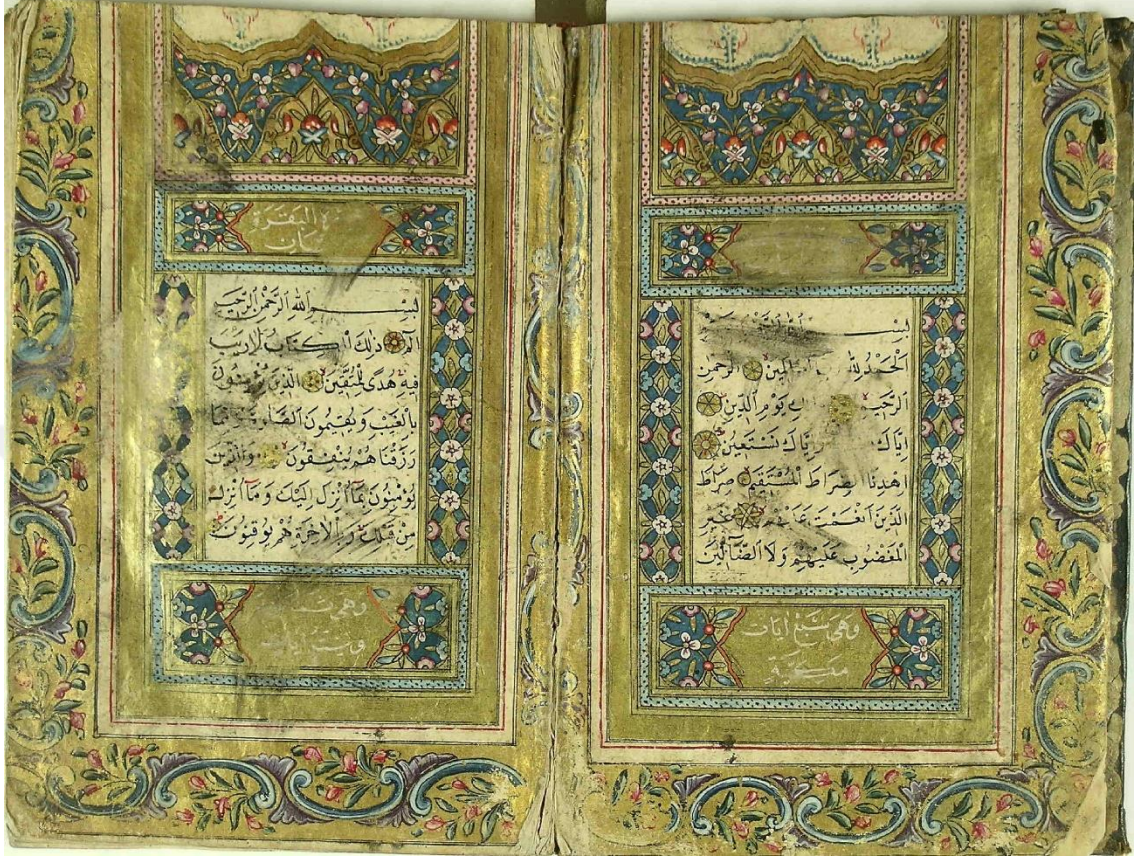 بِسْمِ
اَلْحَمْدُ لِلّٰهِ الْعَالَمِينَ اَلرَّحْمٰنِ
اَلرَّحِيمِ يَوْمِ الدِّينِ
اِيَّاكَ وَاِيَّاكَ نَسْتَعِينُ
اِهْدِنَا الصِّرَاطَ الْمُسْتَقِيمَ صِرَاطَ
الَّذِينَ اَنْعَمْتَ عَلَيْهِمْ غَيْرِ
الْمَغْضُوبِ عَلَيْهِمْ وَلَا الضَّٓالِّينَ
وهى سبع ايات
مكية
البقرة
بِسْمِ اللهِ الرَّحْمٰنِ الرَّحِيمِ
الٓمٓ ذٰلِكَ الْكِتَابُ لَا رَيْبَ
فِيهِ هُدًى لِلْمُتَّقِينَ اَلَّذِينَ يُؤْمِنُونَ
بِالْغَيْبِ وَيُقِيمُونَ الصَّلٰوةَ وَمِمَّا
رَزَقْنَاهُمْ يُنْفِقُونَ وَالَّذِينَ
يُؤْمِنُونَ بِمَٓا اُنْزِلَ اِلَيْكَ وَمَٓا اُنْزِلَ
مِنْ قَبْلِكَ وَبِالْاٰخِرَةِ هُمْ يُوقِنُونَ
وهى